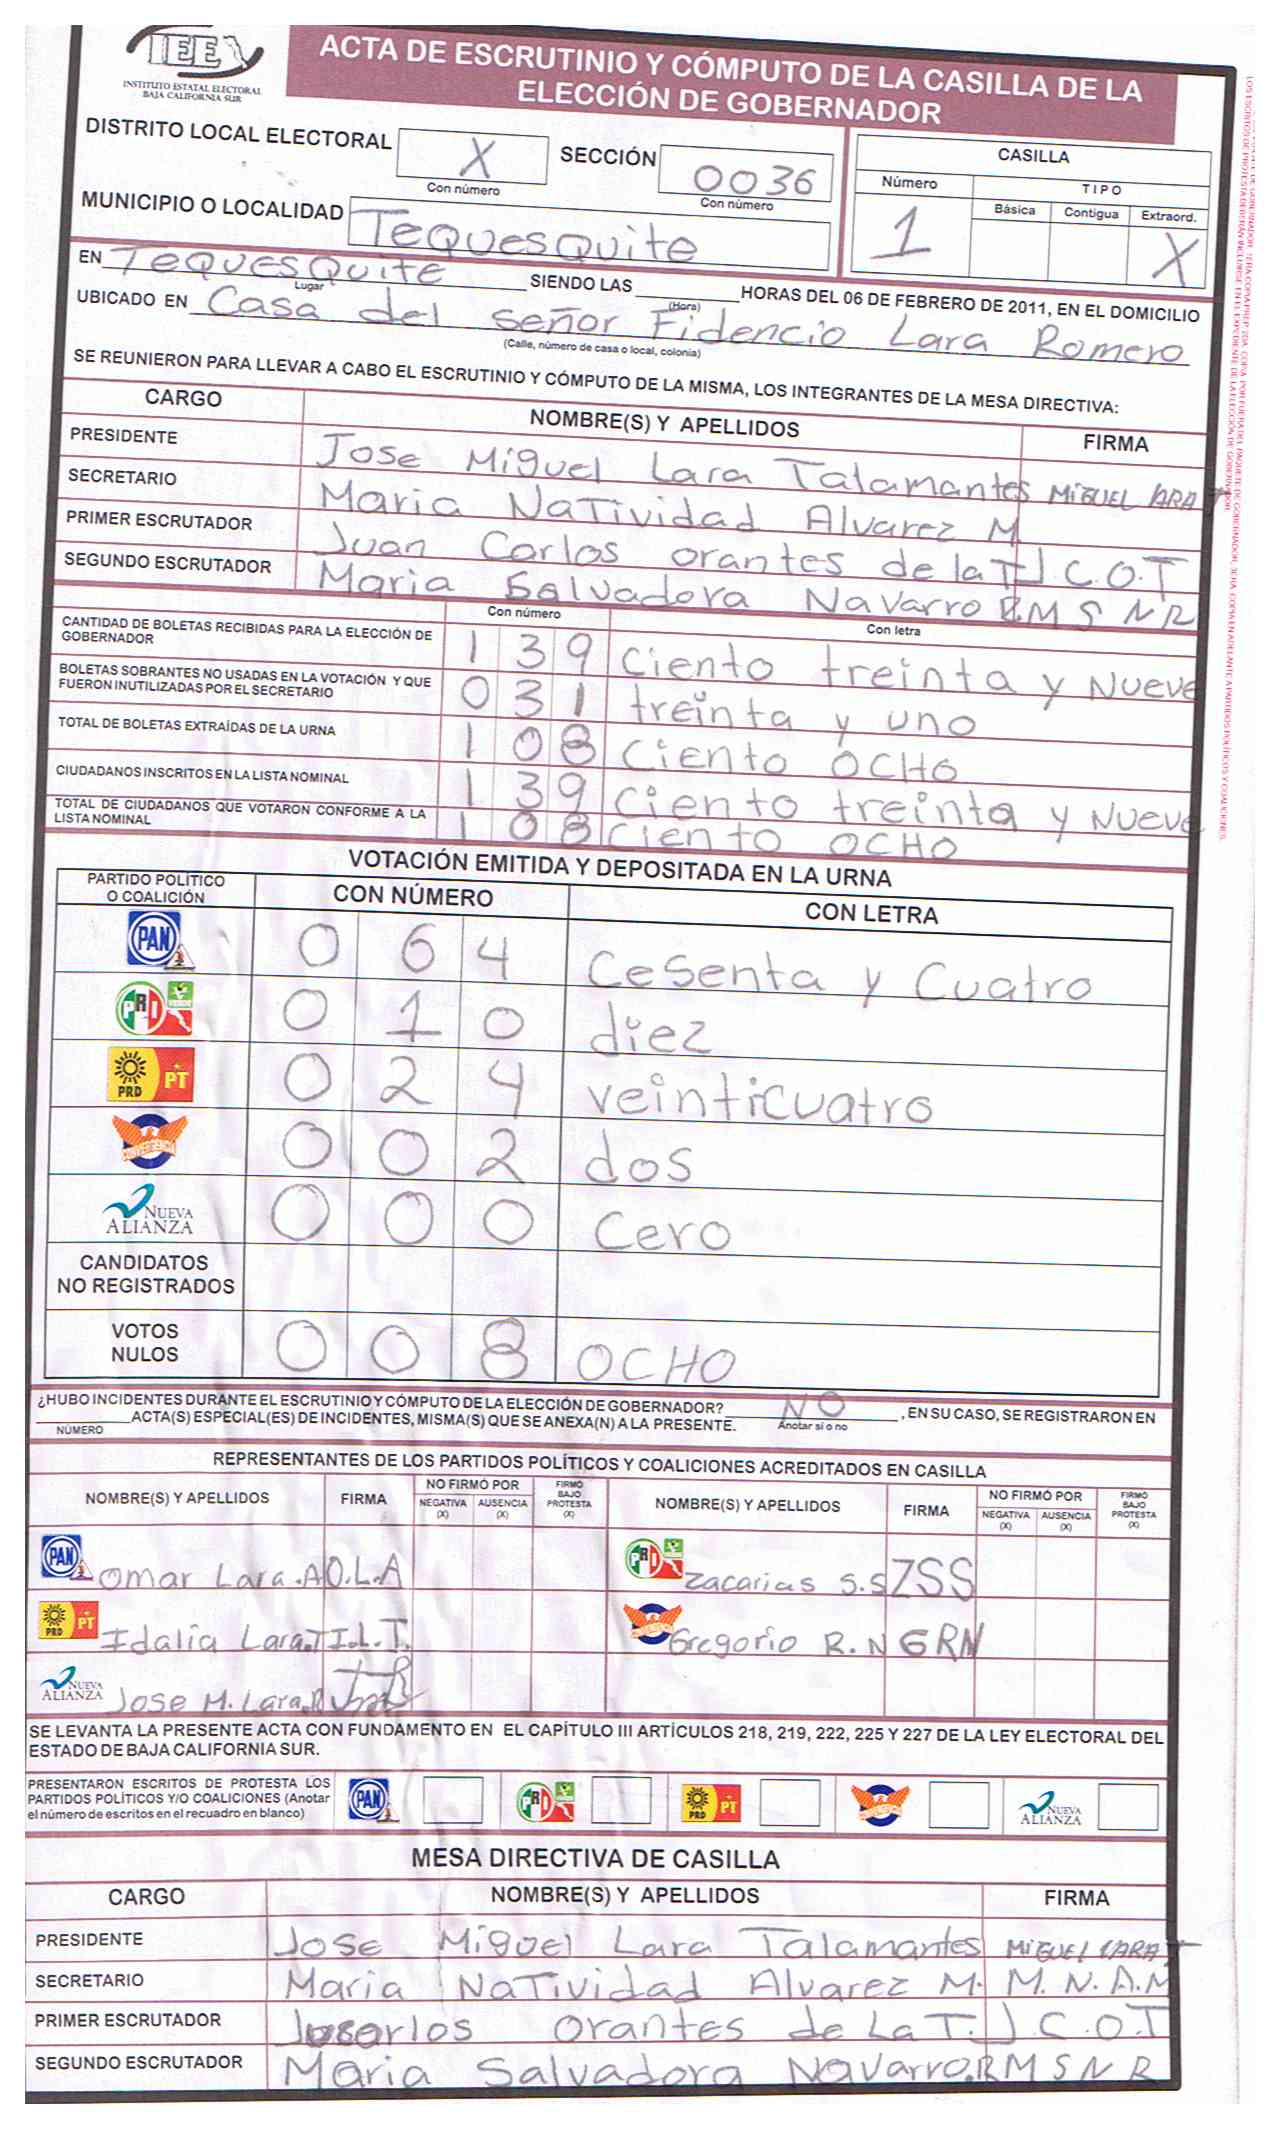 IEE
INSTITUTO ESTATAL ELECTORAL
BAJA CALIFORNIA SUR
ACTA DE ESCRUTINIO Y CÓMPUTO DE LA CASILLA DE LA
ELECCIÓN DE GOBERNADOR
DISTRITO LOCAL ELECTORAL X SECCIÓN 0036
Con número Con número
CASILLA
Número TIPO
Básica Contigua Extraord.
1 X
MUNICIPIO O LOCALIDAD TEQUESQUITE
EN TEQUESQUITE SIENDO LAS HORAS DEL 06 DE FEBRERO DE 2011, EN EL DOMICILIO
Lugar (Hora)
UBICADO EN Casa del señor Fidencio Lara Romero
(Calle, número de casa o local, colonia)
SE REUNIERON PARA LLEVAR A CABO EL ESCRUTINIO Y CÓMPUTO DE LA MISMA, LOS INTEGRANTES DE LA MESA DIRECTIVA:
CARGO NOMBRE(S) Y APELLIDOS FIRMA
PRESIDENTE Jose Miguel Lara Talamantes MIGUEL LARA T
SECRETARIO Maria NaTividad Alvarez M.
PRIMER ESCRUTADOR Juan Carlos orantes de la T J.C.O.T
SEGUNDO ESCRUTADOR Maria Salvadora Navarro R. M S N R
Con número Con letra
CANTIDAD DE BOLETAS RECIBIDAS PARA LA ELECCIÓN DE
GOBERNADOR 1 3 9 Ciento treinta y Nueve
BOLETAS SOBRANTES NO USADAS EN LA VOTACIÓN Y QUE
FUERON INUTILIZADAS POR EL SECRETARIO 0 3 1 treinta y uno
TOTAL DE BOLETAS EXTRAÍDAS DE LA URNA 1 0 8 Ciento OCHO
CIUDADANOS INSCRITOS EN LA LISTA NOMINAL 1 3 9 Ciento treinta y Nueve
TOTAL DE CIUDADANOS QUE VOTARON CONFORME A LA
LISTA NOMINAL 1 0 8 Ciento OCHO
VOTACIÓN EMITIDA Y DEPOSITADA EN LA URNA
PARTIDO POLÍTICO
O COALICIÓN CON NÚMERO CON LETRA
PAN 0 6 4 Cesenta y Cuatro
PRI VERDE 0 1 0 diez
PRD PT 0 2 4 veinticuatro
CONVERGENCIA 0 0 2 dos
NUEVA ALIANZA 0 0 0 Cero
CANDIDATOS
NO REGISTRADOS
VOTOS
NULOS 0 0 8 OCHO
¿HUBO INCIDENTES DURANTE EL ESCRUTINIO Y CÓMPUTO DE LA ELECCIÓN DE GOBERNADOR? NO , EN SU CASO, SE REGISTRARON EN
ACTA(S) ESPECIAL(ES) DE INCIDENTES, MISMA(S) QUE SE ANEXA(N) A LA PRESENTE. Anotar si o no
NÚMERO
REPRESENTANTES DE LOS PARTIDOS POLÍTICOS Y COALICIONES ACREDITADOS EN CASILLA
NOMBRE(S) Y APELLIDOS FIRMA NO FIRMÓ POR NEGATIVA (X) AUSENCIA (X) FIRMÓ BAJO PROTESTA (X) NOMBRE(S) Y APELLIDOS FIRMA NO FIRMÓ POR NEGATIVA (X) AUSENCIA (X) FIRMÓ BAJO PROTESTA (X)
PAN Omar Lara .A O.L.A PRI Zacarias S.S ZSS
PRD PT Idalia Lara.T I.L.T. CONVERGENCIA Gregorio R.N GRN
NUEVA ALIANZA Jose M. Lara.R
SE LEVANTA LA PRESENTE ACTA CON FUNDAMENTO EN EL CAPÍTULO III ARTÍCULOS 218, 219, 222, 225 Y 227 DE LA LEY ELECTORAL DEL
ESTADO DE BAJA CALIFORNIA SUR.
PRESENTARON ESCRITOS DE PROTESTA LOS
PARTIDOS POLÍTICOS Y/O COALICIONES (Anotar
el número de escritos en el recuadro en blanco)
PAN PRI PRD PT CONVERGENCIA NUEVA ALIANZA
MESA DIRECTIVA DE CASILLA
CARGO NOMBRE(S) Y APELLIDOS FIRMA
PRESIDENTE Jose Miguel Lara Talamantes MIGUEL LARA T
SECRETARIO Maria NaTividad Alvarez M. M.N.A.M
PRIMER ESCRUTADOR orantes de La T. J.C.O.T
SEGUNDO ESCRUTADOR Maria Salvadora Navarro.R M S N R